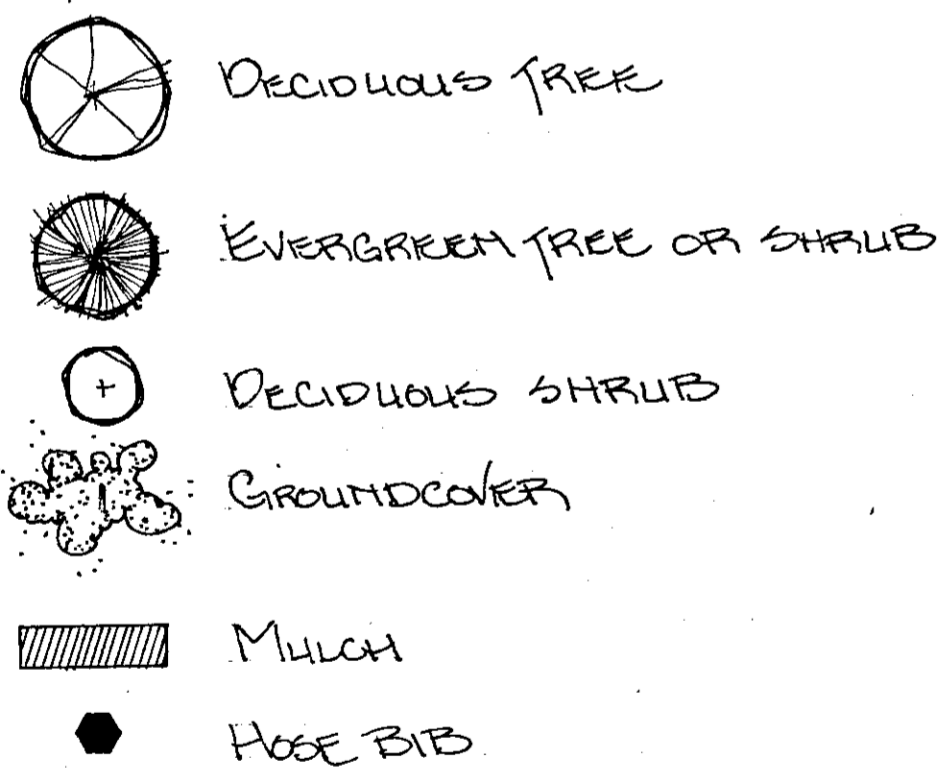 DECIDUOUS TREE
EVERGREEN TREE OR SHRUB
DECIDUOUS SHRUB
GROUNDCOVER
MULCH
HOSE BIB